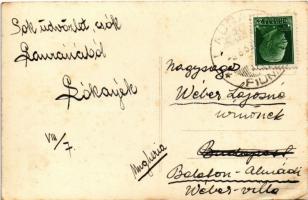 Sok üdvözlet, csók
Lauránától
Rókáyék
VIII/7.
Nagyságos
Weber Lajosné
úrnőnek
Budapest
Balaton-Almádi
Weber-villa
FIUME